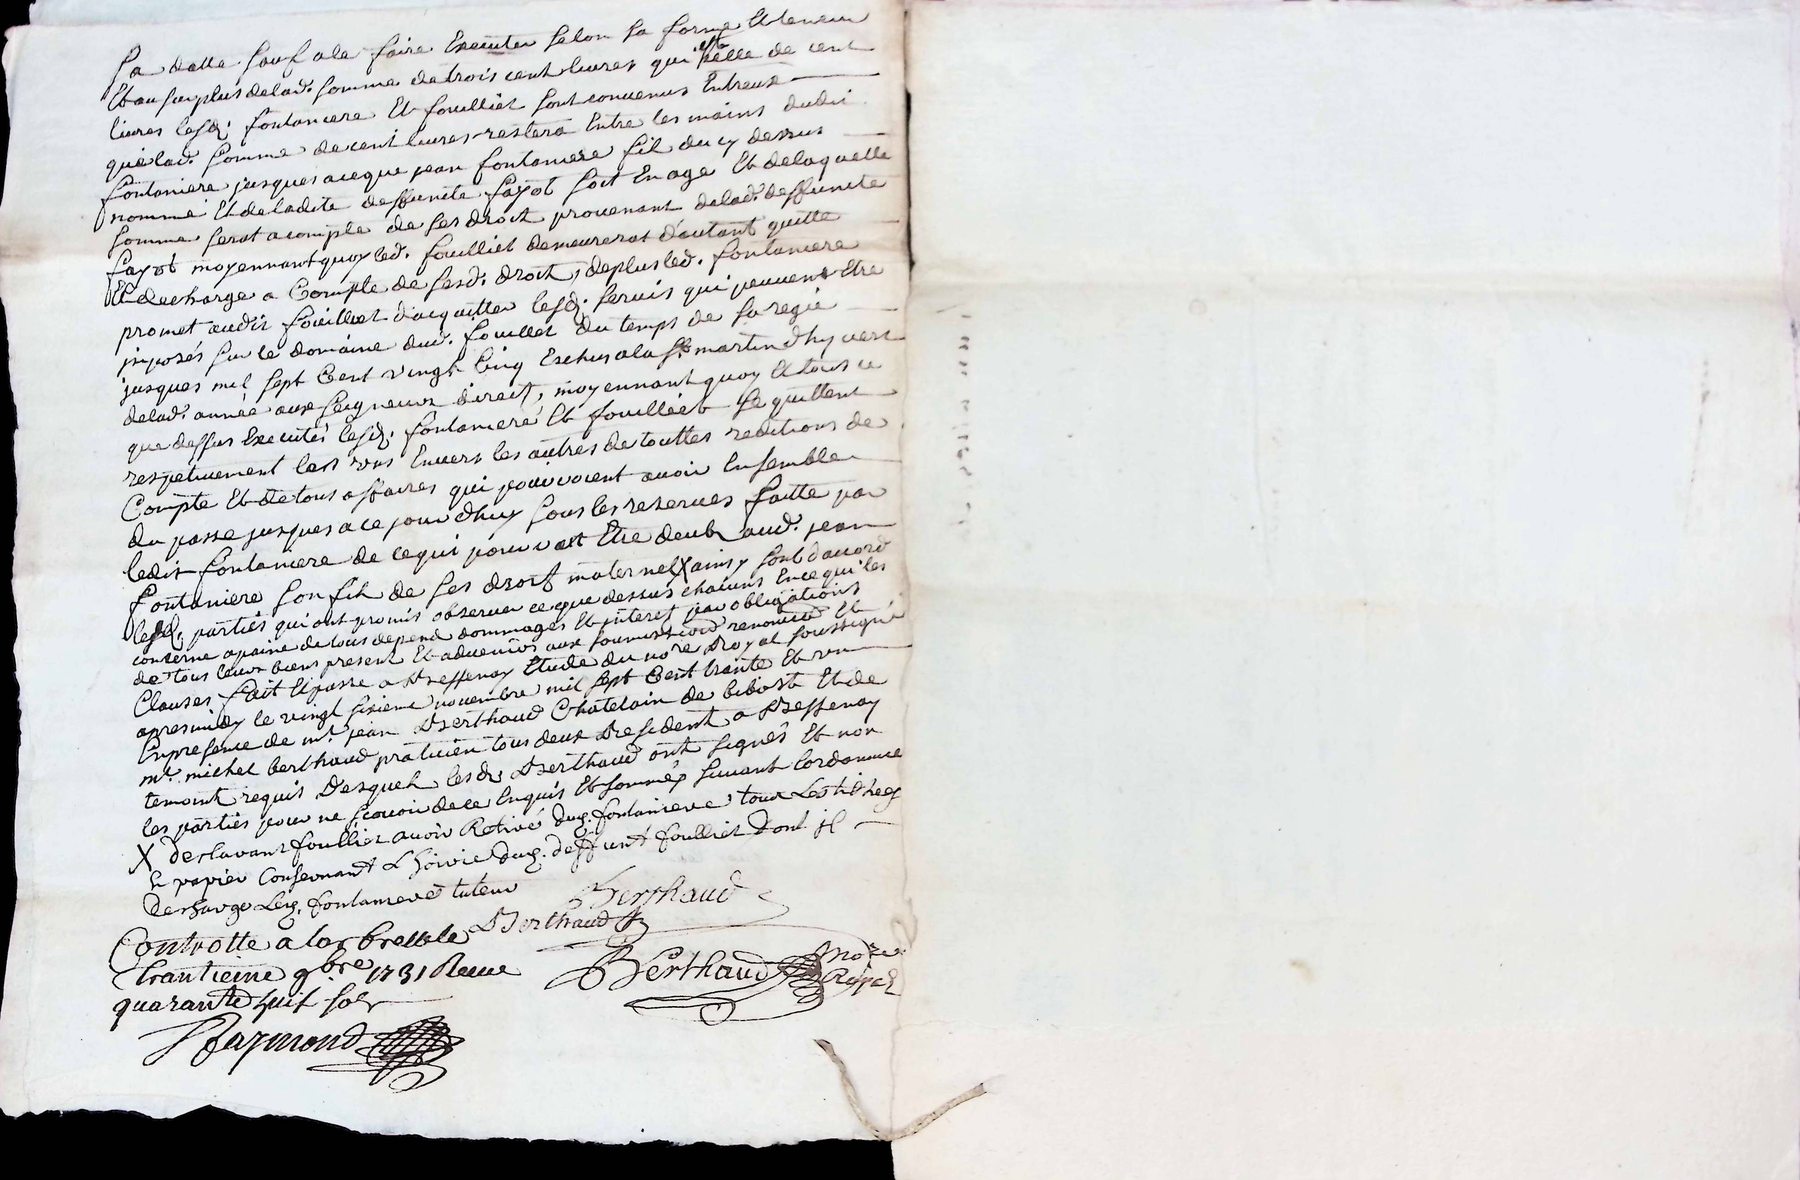 sa datte sauf a la faire Executer selon sa forme Et teneur
Et au surplus delad. somme de trois cent livres qui est celle de cent
livres lesd. fontaniere Et fouilliet sont convenus Entreux
que lad. somme de cent livres restera Entre les mains dudit
fontaniere jusques a ce que jean fontaniere fil du cy dessus
nommé Et de ladite deffunte fayot soit En age Et de laquelle
somme serat a compte de ses droit provenant delad. deffuncte
fayot moyennant quoy led. fouilliet demeurerat d'autant quitte
Et decharge a Compte de sesd. droit, deplus led. fontaniere
promet audit fouilliet d'acquitter lesd. servis qui peuvent Etre
jmposés sur le domaine dud. fouillet du temps de sa regie
jusques mil sept Cent vingt Cinq Exclus a la st martin d'hyvert
delad. année aux seigneurs direct, moyennant quoy Et tout ce
que dessus Executés lesd. fontaniere Et fouilliet se quittent
respetivement les uns Envers les autres de touttes reditions de
Compte Et de tous affaires qui pouvoient avoir Ensemble
du passe jusques a ce jour d'huy sous les reserves faitte par
ledit fontaniere de ce qui pourroit Etre deub aud. jean
fontaniere son fils de ses droit maternel X ainsy sont d'accord
lesd. parties qui ont promis observer ce que dessus chacuns En ce qui les
concerne a paine de tous depend dommages Et jnterest par obligations
de tous leurs biens present Et advenirs aux soumissions renoncia Et
Clauses fait Et passe a Bessenay Etude du no.re Royal soussigné
apres midy le vingt sixieme novembre mil sept Cent trante Et un
En presence de m.r jean Berthaud Chatelain de bibost Et de
m.e michel berthaud praticien tous deux Resident a Bessenay
temoint requis Desquels lesd. Berthaud ont signés Et non
les parties pour ne scavoir de ce Enquis Et sommés suivant l'ordonnance
X declarant foulliet avoir Retiré dud. fontaniere tous Les titres
Et papier Consernant L'hoirie dud. deffunt foulliet dont jl
descharge Led. fontaniere tuteur
Berthaud
Berthaud
Controlle a lar bresle le
trantieme 9bre 1731 Receu
quarante huit sols
Berthaud No.re Royal
Raymond